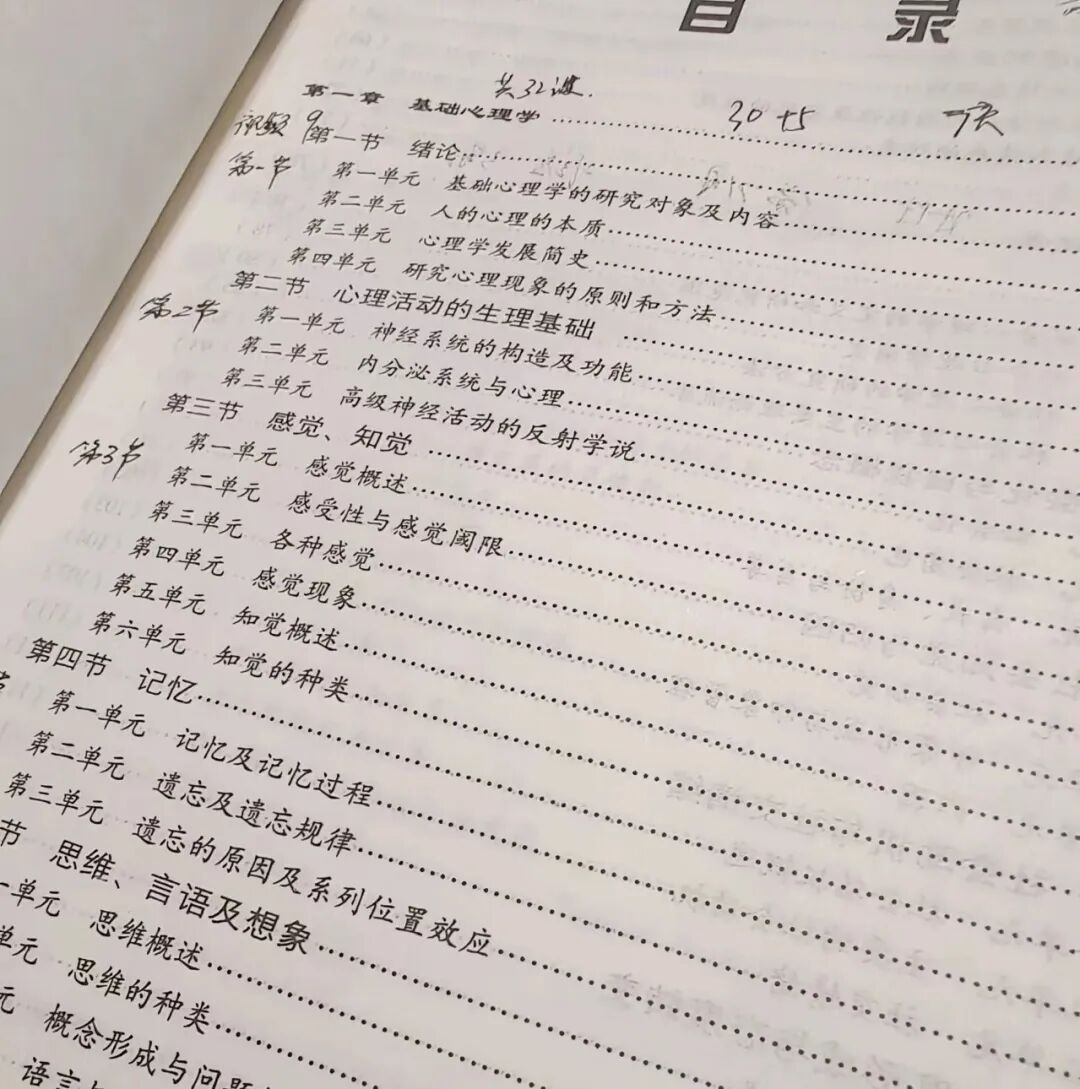 目 录
共32课.
第一章 基础心理学 30+5
视频9 第一节 绪论
第一节 第一单元 基础心理学的研究对象及内容
第二单元 人的心理的本质
第三单元 心理学发展简史
第四单元 研究心理现象的原则和方法
第二节 心理活动的生理基础
第2节 第一单元 神经系统的构造及功能
第二单元 内分泌系统与心理
第三单元 高级神经活动的反射学说
第三节 感觉、知觉
第3节 第一单元 感觉概述
第二单元 感受性与感觉阈限
第三单元 各种感觉
第四单元 感觉现象
第五单元 知觉概述
第六单元 知觉的种类
第四节 记忆
第一单元 记忆及记忆过程
第二单元 遗忘及遗忘规律
第三单元 遗忘的原因及系列位置效应
节 思维、言语及想象
单元 思维概述
单元 思维的种类
元 概念形成与问题
语言